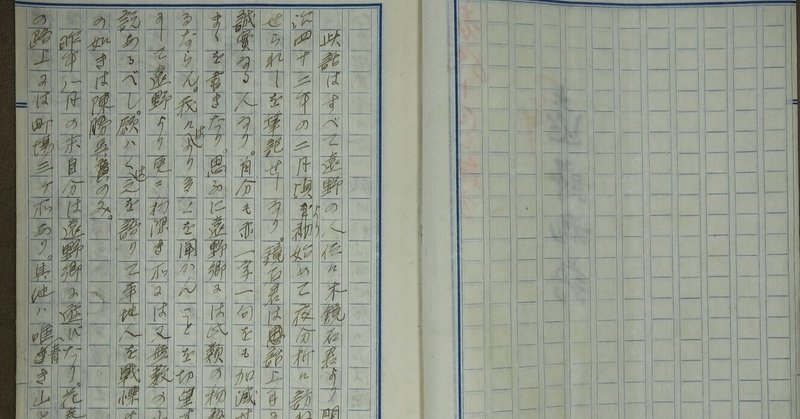 此話はすべて遠野の人佐々木鏡石君より聞
治四十二年の二月頃より始めて夜分折々訪ね
せられしを筆記せしなり。鏡石君は話上手
誠實なる人なり。自分も亦一字一句をも加減せ
まゝを書きたり。思ふに遠野郷には此類の物語
るならん。我々はより多くを聞かんことを切望す
して遠野より更に物深き所には又無数の山
説あるべし。願はくは之を語りて平地人を戦慄せ
の如きは陳勝呉廣のみ。
昨年八月の末自分は遠野郷に遊びたり。花巻
の路上には町場三ヶ所あり。其他ハ唯青き山と